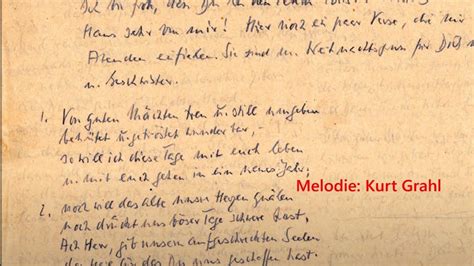 Ich bin froh, dass Du
Hans sehr von mir! Hier noch ein paar Verse, die mir
Abenden einfielen. Sie sind Weihnachtsgruss für Dich
u. Geschwister.
1. Von guten Mächten treu u. still umgeben
behütet u. getröstet wunderbar, -
so will ich diese Tage mit euch leben
u. mit euch gehen in ein neues Jahr;
Melodie: Kurt Grahl
2. noch will das alte unsre Herzen quälen
noch drückt uns böser Tage schwere Last,
Ach Herr, gib unsern aufgescheuchten Seelen
das Heil, für das Du uns geschaffen hast.